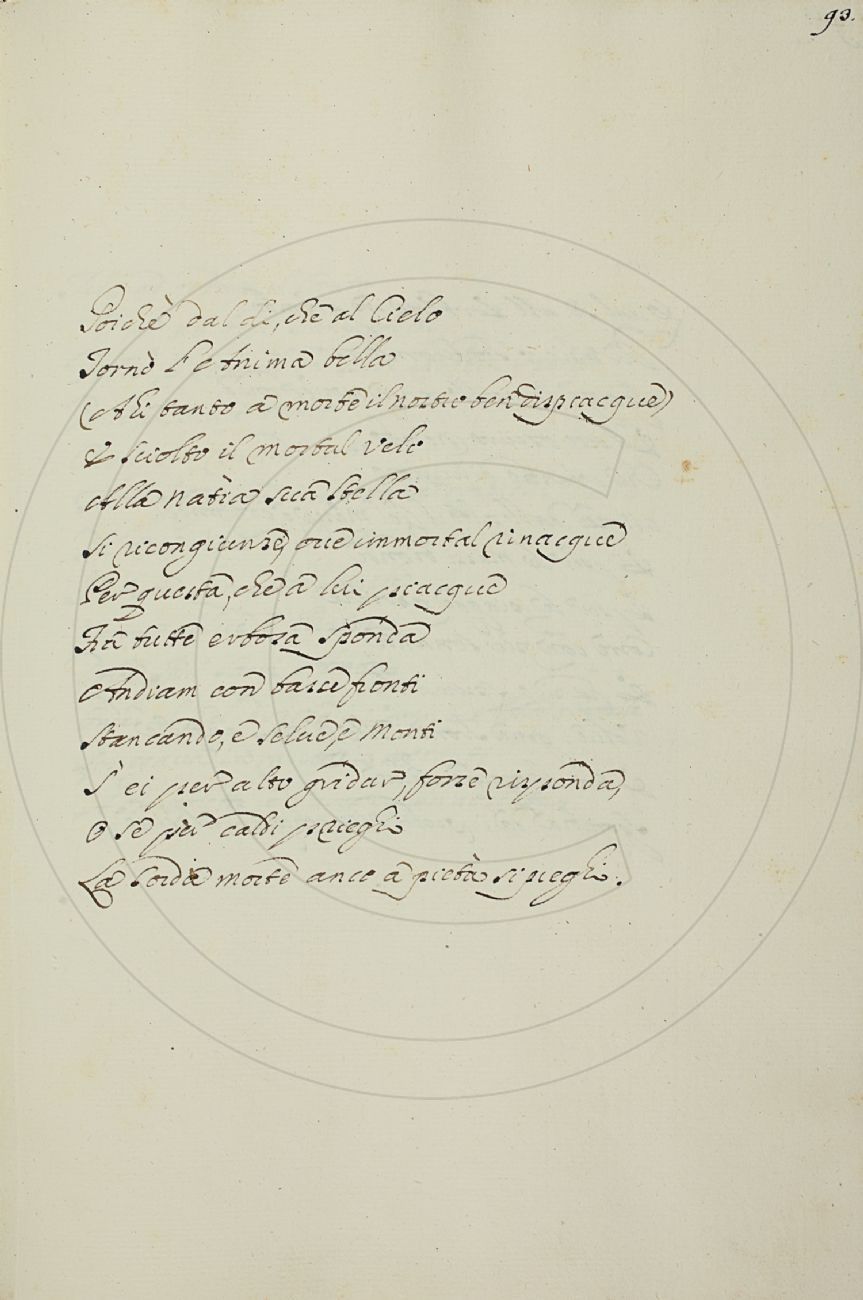 93.
Poichè dal dì, che al Cielo
Tornò l'Anima bella
(Ahi tanto a morte il nostro ben dispiacque)
E sciolto il mortal velo
Alla natia sua stella
Si ricongiunse, ove immortal rinacque
Per questa, che a lui piacque
Fra tutte erbosa sponda
Andiam con basse fronti
Stancando, e selve, e Monti
S' ei per alto gridar, forse risponda,
O se per caldi prieghi
La sorda morte anco a pietà si pieghi.